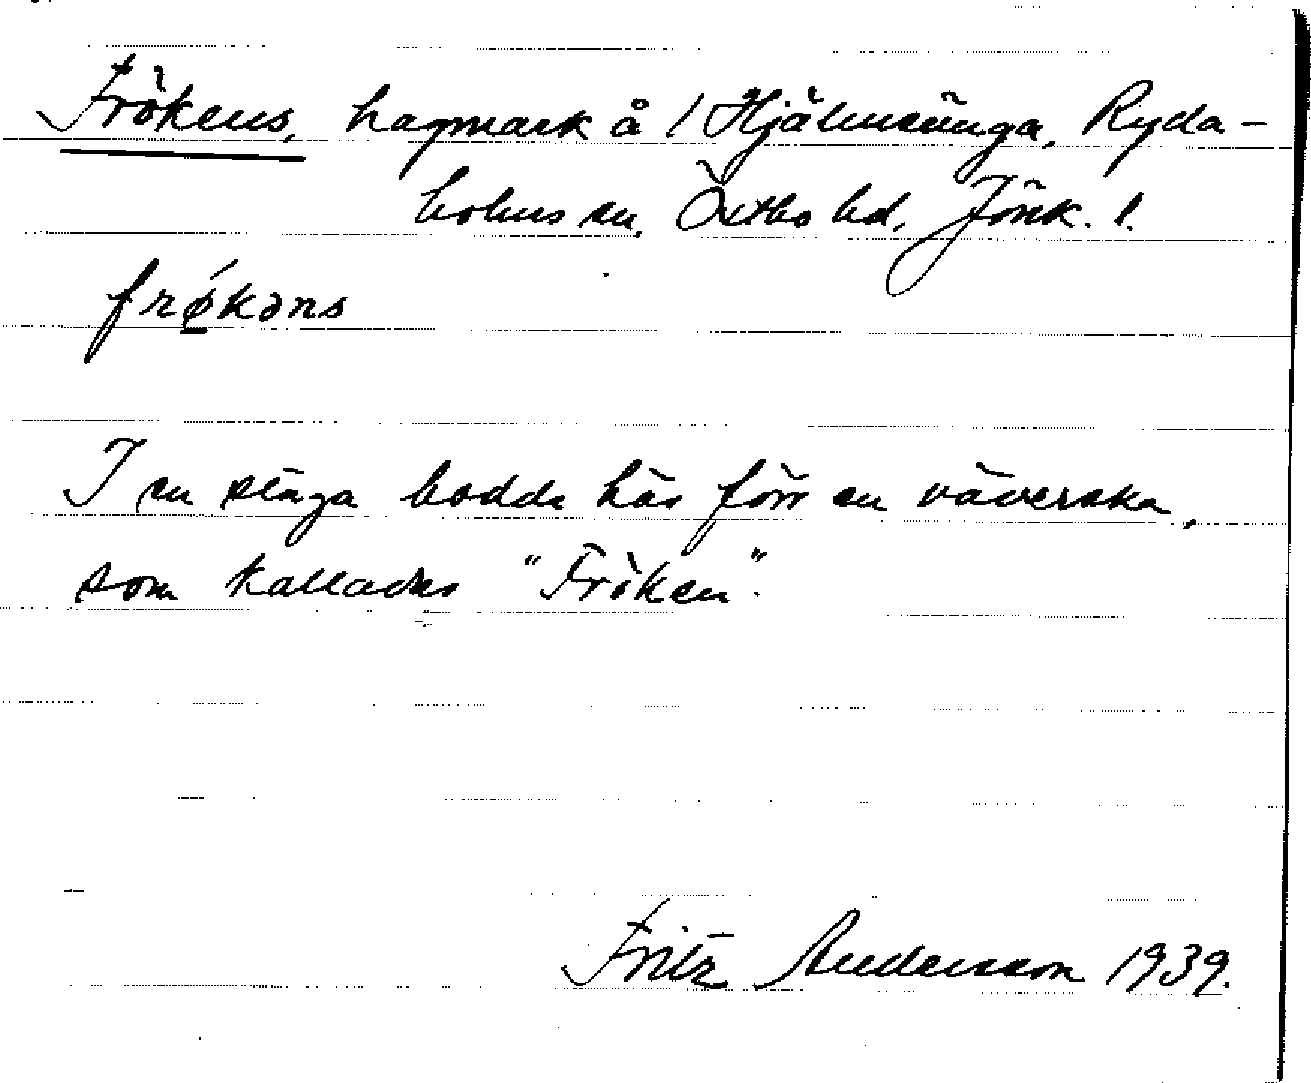 Frökens, hagmark å 1 Hjälmsänga, Ryda-
holms sn, Östbo hd, Jönk. l.
frǿkəns
I en stuga bodde här förr en väverska,
som kallades "Fröken".
Fritz Andersson 1939.